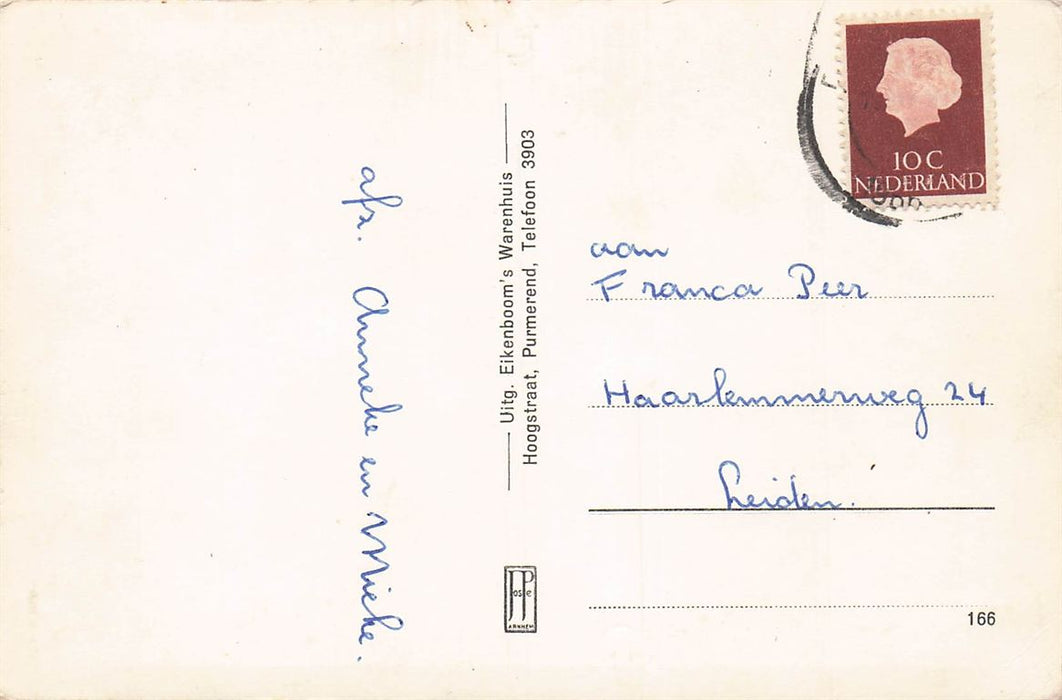 afz. Anneke en Mieke.
Uitg. Eikenboom's Warenhuis
Hoogstraat, Purmerend, Telefoon 3903
JosPé
ARNHEM
10 C
NEDERLAND
aan
Franca Peer
Haarlemmerweg 24
Leiden.
166